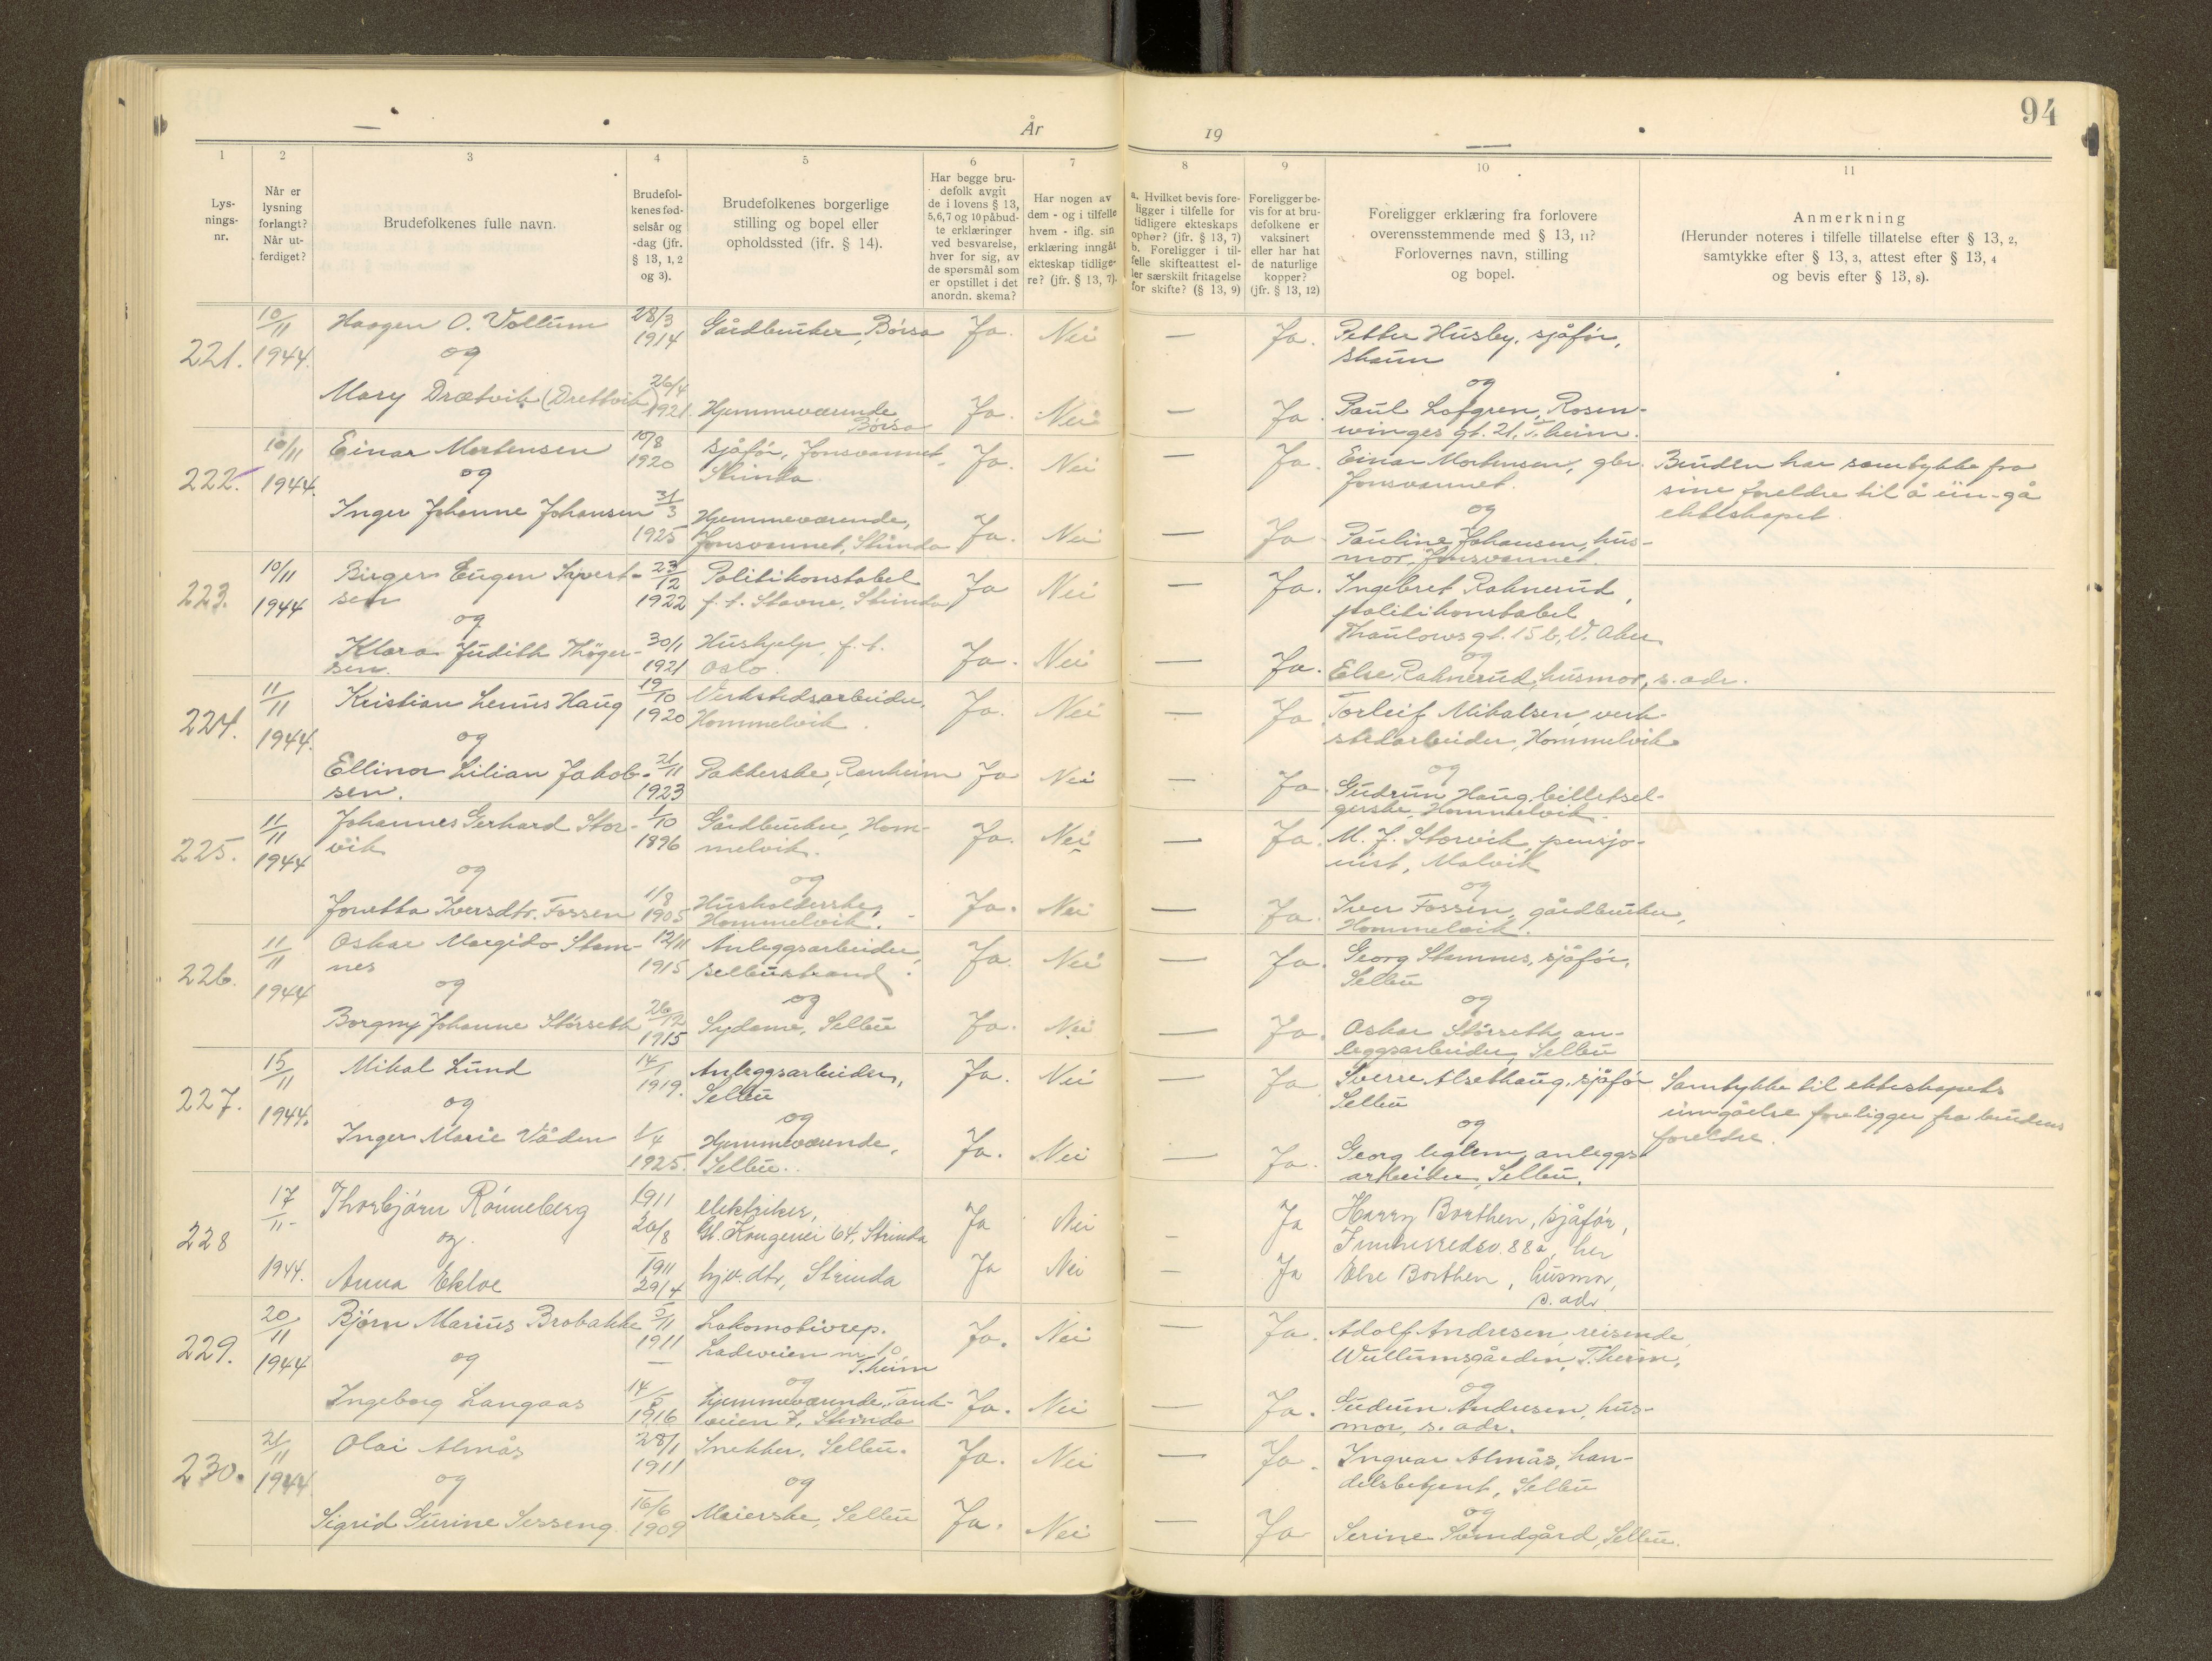 94
År 19
1 2 3 4 5 6 7 8 9 10 11
Lys-
nings-
nr.
Når er
lysning
forlangt?
Når ut-
ferdiget?
Brudefolkenes fulle navn.
Brudefol-
kenes fød-
selsår og
-dag (jfr.
§ 13, 1, 2
og 3).
Brudefolkenes borgerlige
stilling og bopel eller
opholdssted (ifr. § 14).
Har begge bru-
defolk avgit
de i lovens § 13,
5,6,7 og 10 påbud-
te erklæringer
ved besvarelse,
hver for sig, av
de spørsmål som
er opstillet i det
anordn. skema?
Har nogen av
dem - og i tilfelle
hvem - iflg. sin
erklæring inngått
ekteskap tidlige-
re? (jfr. § 13, 7).
a. Hvilket bevis fore-
ligger i tilfelle for
tidligere ekteskaps
ophør? (jfr. § 13, 7)
b. Foreligger i til-
felle skifteattest el-
ler særskilt fritagelse
for skifte? (§ 13, 9)
Foreligger be-
vis for at bru-
defolkene er
vaksinert
eller har hat
de naturlige
kopper?
(jfr. § 13, 12)
Foreligger erklæring fra forlovere
overensstemmende med § 13, 11?
Forlovernes navn, stilling
og bopel.
Anmerkning
(Herunder noteres i tilfelle tillatelse efter § 13, 2,
samtykke efter § 13, 3, attest efter § 13, 4
og bevis efter § 13, 8).
221. 10/11 1944. Haagen O. Vollum 28/3 1914 Gårdbruker, Börsa Ja. Nei — Ja. Petter Husby, sjåför,
Skaun
og og
Mary Drætvik (Drettvik) 26/4 1921. Hjemmeværende, Börsa Ja. Nei — Ja. Paul Lofgren, Rosen-
winges gt. 21, T.heim.
222. 10/11 1944. Einar Mortensen 10/8 1920 sjåför, Jonsvannet, Ja. Nei — Ja. Einar Mortensen, gbr. Bruden har samtykke fra
Strinda Jonsvannet. sine foreldre til å inn-gå
og og ekteskapet.
Inger Johanne Johansen 31/3 1925 Hjemmeværende,
Jonsvannet, Strinda Ja. Nei — Ja Pauline Johansen, hus-
mor, Jonsvannet.
223. 10/11 1944 Birger Eugen Sivert-
sen 23/12 1922 Politikonstabel
f. t. Stavne, Strinda Ja Nei — Ja. Ingebret Rahnerud,
politikonstabel
Thaulows gt. 15 b, V. Aker
og og
Klara Judith Thöger-
sen. 30/1 1921 Hushjelp, f. t.
Oslo. Ja. Nei — Ja. Else Rahnerud, husmor, s. adr.
224. 11/11 1944. Kristian Lenus Haug 19/10 1920 Verkstedsarbeider,
Hommelvik. Ja. Nei — Ja Torleif Mikalsen, verk-
stedarbeider, Hommelvik
og og
Ellinor Lilian Jakob-
sen. 21/11 1923 Pakkerske, Ranheim Ja Nei — Ja. Gudrun Haug, billetsel-
gerske, Hommelvik.
225. 11/11 1944 Johannes Gerhard Stor-
vik 1/10 1896 Gårdbruker, Hom-
melvik. Ja. Nei — Ja. M. J. Storvik, pensjo-
nist, Malvik
og og og
Jonetta Iversdtr. Fossen 1/8 1905 Husholderske,
Hommelvik. Ja. Nei — Ja. Iver Fossen, gårdbruker,
Hommelvik.
226. 11/11 1944 Oskar Margido Stam-
nes 12/11 1915 Anleggsarbeider,
Selbustrand. Ja. Nei — Ja. Georg Stamnes, sjåför,
Selbu
og og og
Borgny Johanne Störseth 26/12 1915 Sydame, Selbu Ja. Nei — Ja. Oskar Störseth, an-
leggsarbeider, Selbu
227. 15/11 1944. Mikal Lund 14/1 1919. Anleggsarbeider,
Selbu Ja. Nei — Ja Sverre Alsethaug, sjåför Samtykke til ekteskapets
Selbu inngåelse foreligger fra brudens
og og og foreldre.
Inger Marie Våden 1/4 1925. Hjemmeværende,
Selbu. Ja. Nei — Ja. Georg Uglem, anleggs-
arbeider, Selbu.
228 17/11 1944. Thorbjørn Rönneberg 1911 26/8 elektriker,
Gl. Kongevei 64, Strinda Ja Nei — Ja Harry Borthen, sjåför,
Innherredsv. 88a, her
og.
Anna Ekloe 1911 29/4 hjv. dtr, Strinda Ja Nei — Ja Else Borthen, husmor,
s. adr.
229. 20/11 1944 Björn Marius Brobakke 5/11 1911 Lokomotivrep.
Ladeveien nr. 10,
T.heim Ja. Nei — Ja. Adolf Andresen, reisende,
Wullumsgården, T.heim,
og og og
Ingeborg Langaas 14/5 1916 hjemmeværende, Tank-
veien 7, Strinda Ja. Nei — Ja. Gudrun Andresen, hus-
mor, s. adr.
230. 21/11 1944 Olai Almås 28/1 1911 Snekker, Selbu. Ja. Nei — Ja. Ingvar Almås, han-
delsbetjent, Selbu
og og og
Sigrid Gurine Sesseng. 16/6 1909 Meierske, Selbu Ja. Nei — Ja Serine Svindgård, Selbu.